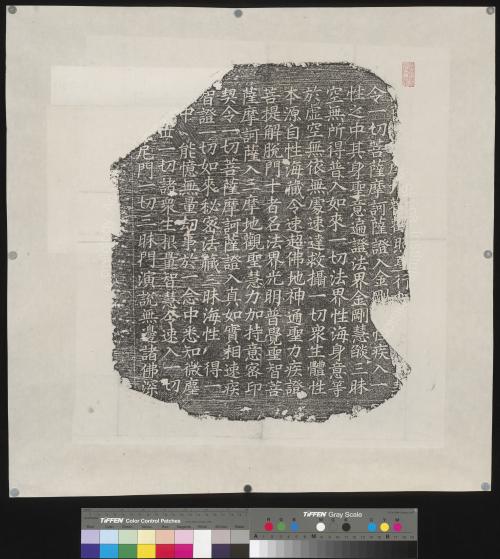 令一切菩薩摩訶薩證入金剛 性疾入一
性之中其身聖意遍證法界金剛慧燄三昧
空無所得普入如來一切法界性海身意等
於虛空無依無處速達救攝一切衆生體性
本源自性海藏令速超佛地神通聖力疾證
菩提解脫門十者名法界光明普覺聖智菩
薩摩訶薩入三摩地觀聖慧力加持意密印
契令一切菩薩摩訶薩證入真如實相速疾
皆證一切如來秘密法藏三昧海性 得一
中 能憶無量切事於一念中悉知微塵
世 一切諸衆生根 智慧令速入一切
尼門一切三昧門演說無邊諸佛深
TIFFEN Color Control Patches
TIFFEN Gray Scale